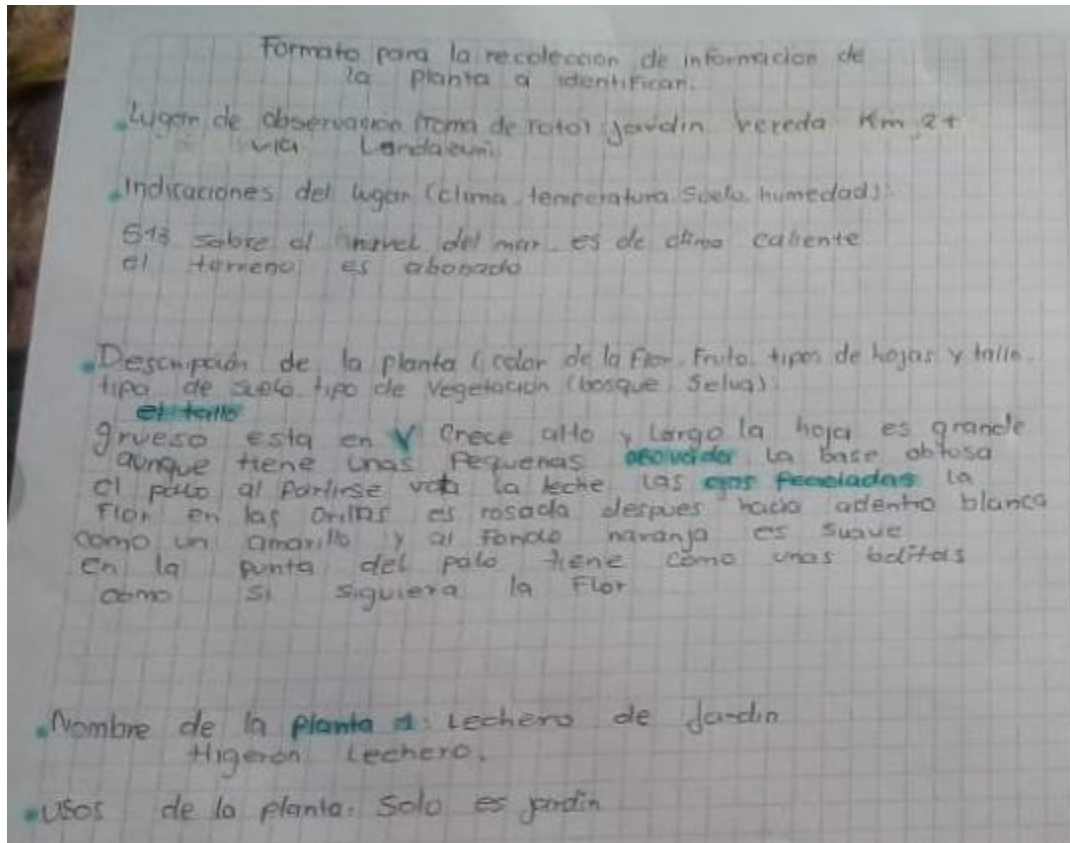 Formato para la recolección de informacion de
la planta a identifican.
Lugar de observacion (Toma de foto) jardin vereda Km 2+
via
Indicaciones del lugar (clima, temperatura. Suelo. humedad):
513 sobre el nivel del mar. es de clima caliente
el terreno es abonado
Descripción de la planta (color de la flor. Fruto. tipos de hojas y tallo.
tipo de suelo. tipo de vegetación (bosque Selva):
el tallo
grueso esta en V crece alto y largo la hoja es grande
aunque tiene unas pequeñas la base obtusa
el palo al partirse vota la leche las ojas la
Flor en las orillas es rosada despues hacia adentro blanca
como un amarillo y al fondo naranja es suave
en la punta del palo tiene como unas bolitas
como si siguiera la Flor
Nombre de la planta 1: Lechero de Jardin
Higeron Lechero.
Usos de la planta. Solo es jardin